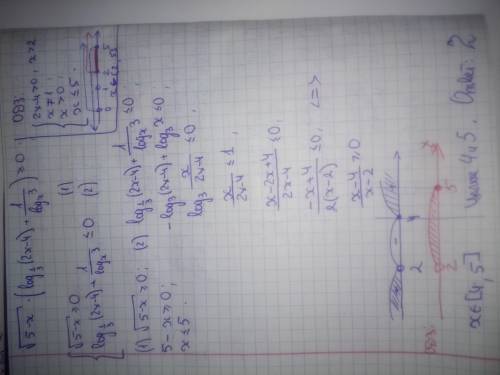 √(5-x) · (log_{1/3}(2x-4) + 1/(log_x 3)) ≥ 0;
ОДЗ:
{ 2x-4>0; x>2
x≠1;
x>0;
x≤5.
0 1 2 5
x∈(2,5]
{ √(5-x) ≥ 0 (1)
log_{1/3}(2x-4) + 1/(log_x 3) ≤ 0 (2)
(1) √(5-x) ≥ 0;
5-x ≥ 0;
x ≤ 5.
(2) log_{1/3}(2x-4) + 1/(log_x 3) ≤ 0;
-log_3(2x-4) + log_3 x ≤ 0;
log_3 x/(2x-4) ≤ 0;
x/(2x-4) ≤ 1;
(x-2x+4)/(2x-4) ≤ 0;
(-x+4)/(2(x-2)) ≤ 0; <=>
(x-4)/(x-2) ≥ 0
+ - +
2 4
ОДЗ:
2 5 x
x∈[4,5] целые 4 и 5. Ответ: 2